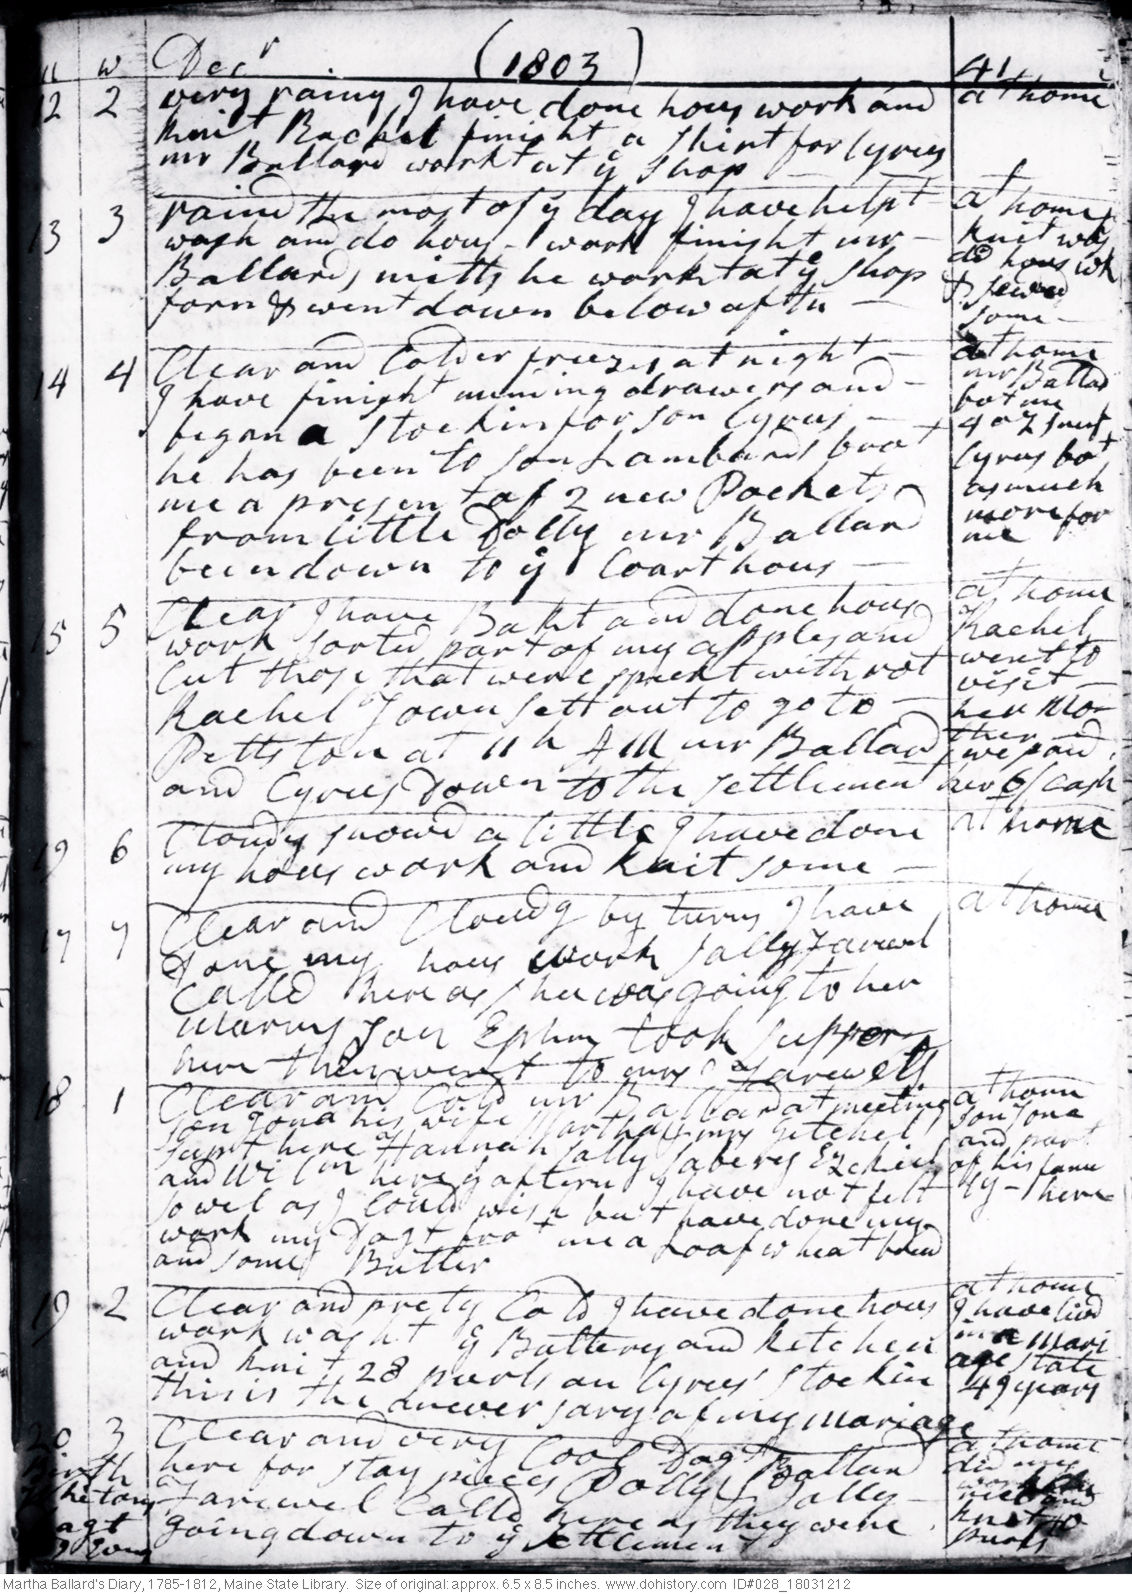 m w Decr (1803) 41
12 2 very rainy I have done hous work and at home
knit Rachel finisht a Shirt for Cyrus
mr Ballard workt at ÿ shop
13 3 raind the most of ÿ day I have helpt at home
wash and do hous work finisht mr knit wash
Ballards mitts he workt at ÿ shop do hous wk
forn & went down below aftn & sewed
some
14 4 Clear and Colder freezes at night at home
I have finisht mending drawers and mr Ballad
began a Stockin for son Cyrus bot me
he has been to son Lambards brot 4 oz snuf
me a present of 2 new Pockets Cyrus bot
from little Dolly mr Ballard as much
been down to ÿ Coart hous more for
me
15 5 Clear I have Bakt and done hous at home
work sorted part of my apples and Rachel
Cut those that were spect with rot went to
Rachel Town sett out to go to visit
Pittston at 11 h AM mr Ballard her Mo
and Cyrus Down to the settlement ther
we paid
her 6/ cash
19 6 Cloudy snowd a little I have done at home
my hous work and knit some
17 7 Clear and Cloudy by turns I have at home
done my hous work Sally Farewel
Calld here as shee was going to her
marms son Ephm took supper
here then went to mrs Farewells
18 1 Clear and Cold mr Ballard at meeting at home
son Jona his wife Martha & mrs Getchel son Jona
supt here Hannah Sally Ezekiel and part
and Wilm here ÿ aftern I have not felt of his fami
so wel as I Could wish but have done my ly here
work my Dagt brot me a Loaf wheat bred
and some Butter
19 2 Clear and prety Cold I have done hous at home
work washt ÿ Buttery and ketchen I have livd
and knit 28 purls on Cyrus' Stockin in a mari
this is the aniversary of my mariage age state
49 years
20 3 Clear and very Cool Dagt Ballard at home
Birth here for stay pieces Dolly & Sally did my
Whetons Farewel Calld here as they were
Dagt going down to ÿ settlement knit 40
purls
Martha Ballard's Diary, 1785-1812, Maine State Library. Size of original: approx. 6.5 x 8.5 inches. www.dohistory.com ID#028_18031212